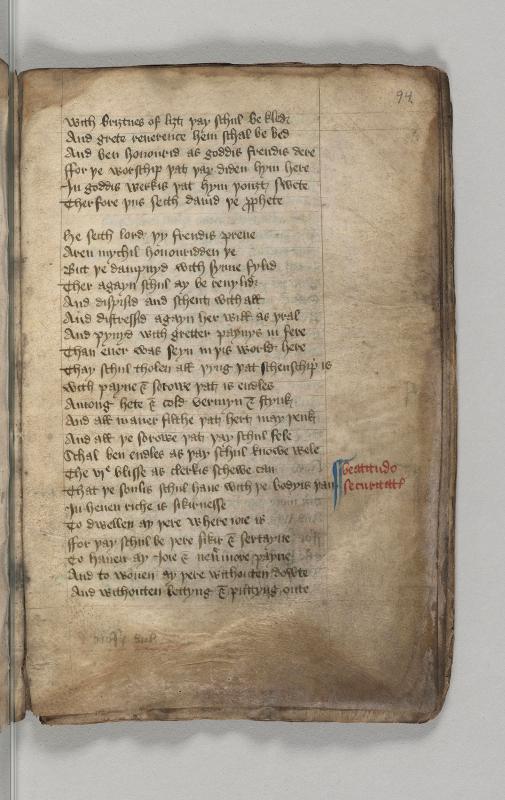 94
With briȝtnes of liȝt þay schul be kled
And grete reuerence hem schal be bed
And ben honourid as goddis frendis dere
ffor þe worschip þat þay diden hym here
In goddis werkis þat hym þouȝt swete
Therfore þus seith dauid þe prophete
He seith lord þy frendis preue
Aren mychil honouridden ȝe
But þe dampnyd with synne fylid
Ther agayn schul ay be reuylid
And dispisid and schent with all
And distressid agayn her will as þral
And pyned with gretter paynys in fere
Than euer was seyn in þis world here
Thay schul tholen all þyng þat schenschip is
With payne & sorowe þat is endles
Among hete & cold vermyn & stynk
And all maner filthe þat hert may þenk
And all þe sorowe þat þay schul fele
Schal ben endles as þay schul knowe wele
The viᵉ blisse as clerkis schewe can
That þe soulis schul haue with þe bodyis þan
beatitudo
securitatis
In heuen riche is sikirnesse
To dwellen ay þere where ioie is
ffor þay schul be þere sikir & sertayne
To hauen ay Ioie & neuermore payne
And to wonen ay þere withouten doute
And withouten lettyng & puttyng oute